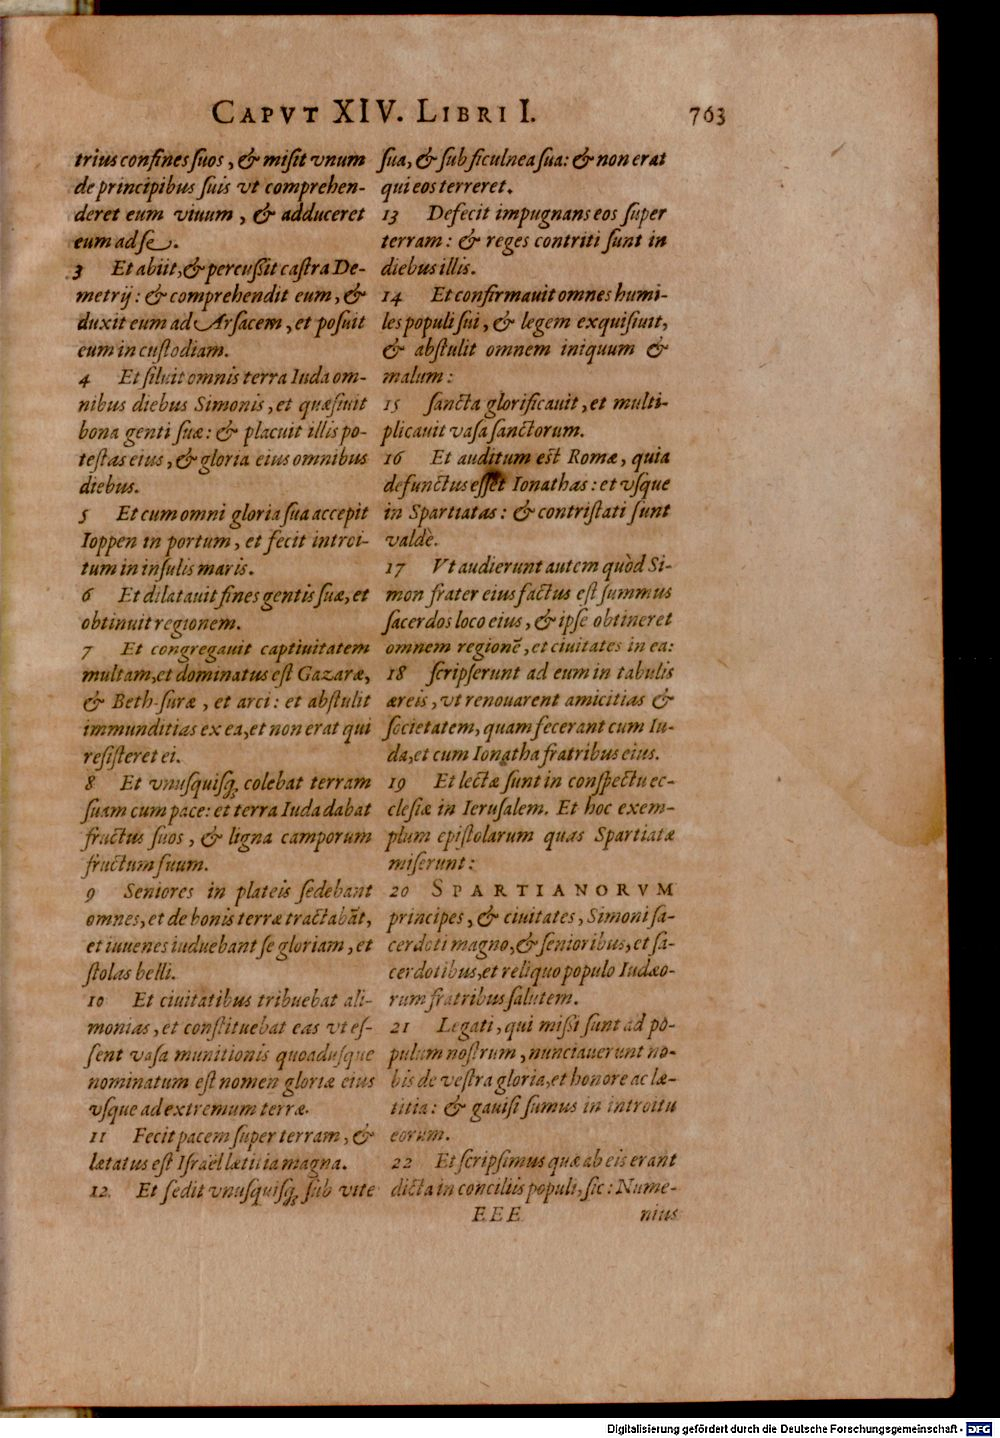 CAPVT XIV. LIBRI I. 763
trius confines ſuos, & miſit vnum
de principibus ſuis vt comprehen-
deret eum viuum, & adduceret
eum ad ſe.
3 Et abiit, & percuſsit caſtra De-
metrij: & comprehendit eum, &
duxit eum ad Arſacem, et poſuit
eum in cuſtodiam.
4 Et ſiluit omnis terra Iuda om-
nibus diebus Simonis, et quæſiuit
bona genti ſuæ: & placuit illis po-
teſtas eius, & gloria eius omnibus
diebus.
5 Et cum omni gloria ſua accepit
Ioppen in portum, et fecit introi-
tum in inſulis maris.
6 Et dilatauit fines gentis ſuæ, et
obtinuit regionem.
7 Et congregauit captiuitatem
multam, et dominatus eſt Gazaræ,
& Beth-ſuræ, et arci: et abſtulit
immunditias ex ea, et non erat qui
reſiſteret ei.
8 Et vnuſquiſq; colebat terram
ſuam cum pace: et terra Iuda dabat
fructus ſuos, & ligna camporum
fructum ſuum.
9 Seniores in plateis ſedebant
omnes, et de bonis terræ tractabāt,
et iuuenes induebant ſe gloriam, et
ſtolas belli.
10 Et ciuitatibus tribuebat ali-
monias, et conſtituebat eas vt eſ-
ſent vaſa munitionis quoaduſque
nominatum eſt nomen gloriæ eius
vſque ad extremum terræ.
11 Fecit pacem ſuper terram, &
lætatus eſt Iſraël lætitia magna.
12 Et ſedit vnuſquiſq; ſub vite
ſua, & ſub ficulnea ſua: & non erat
qui eos terreret.
13 Defecit impugnans eos ſuper
terram: & reges contriti ſunt in
diebus illis.
14 Et confirmauit omnes humi-
les populi ſui, & legem exquiſiuit,
& abſtulit omnem iniquum &
malum:
15 ſancta glorificauit, et multi-
plicauit vaſa ſanctorum.
16 Et auditum eſt Romæ, quia
defunctus eſſet Ionathas: et vſque
in Spartiatas: & contriſtati ſunt
valdè.
17 Vt audierunt autem quòd Si-
mon frater eius factus eſt ſummus
ſacerdos loco eius, & ipſe obtineret
omnem regionē, et ciuitates in ea:
18 ſcripſerunt ad eum in tabulis
æreis, vt renouarent amicitias &
ſocietatem, quam fecerant cum Iu-
da, et cum Ionatha fratribus eius.
19 Et lectæ ſunt in conſpectu ec-
cleſiæ in Ieruſalem. Et hoc exem-
plum epiſtolarum quas Spartiatæ
miſerunt:
20 SPARTIANORVM
principes, & ciuitates, Simoni ſa-
cerdoti magno, & ſenioribus, et ſa-
cerdotibus, et reliquo populo Iudæo-
rum fratribus ſalutem.
21 Legati, qui miſsi ſunt ad po-
pulum noſtrum, nunciauerunt no-
bis de veſtra gloria, et honore ac læ-
titia: & gauiſi ſumus in introitu
eorum.
22 Et ſcripſimus quæ ab eis erant
dicta in conciliis populi, ſic: Nume-
EEE nius
Digitalisierung gefördert durch die Deutsche Forschungsgemeinschaft - DFG